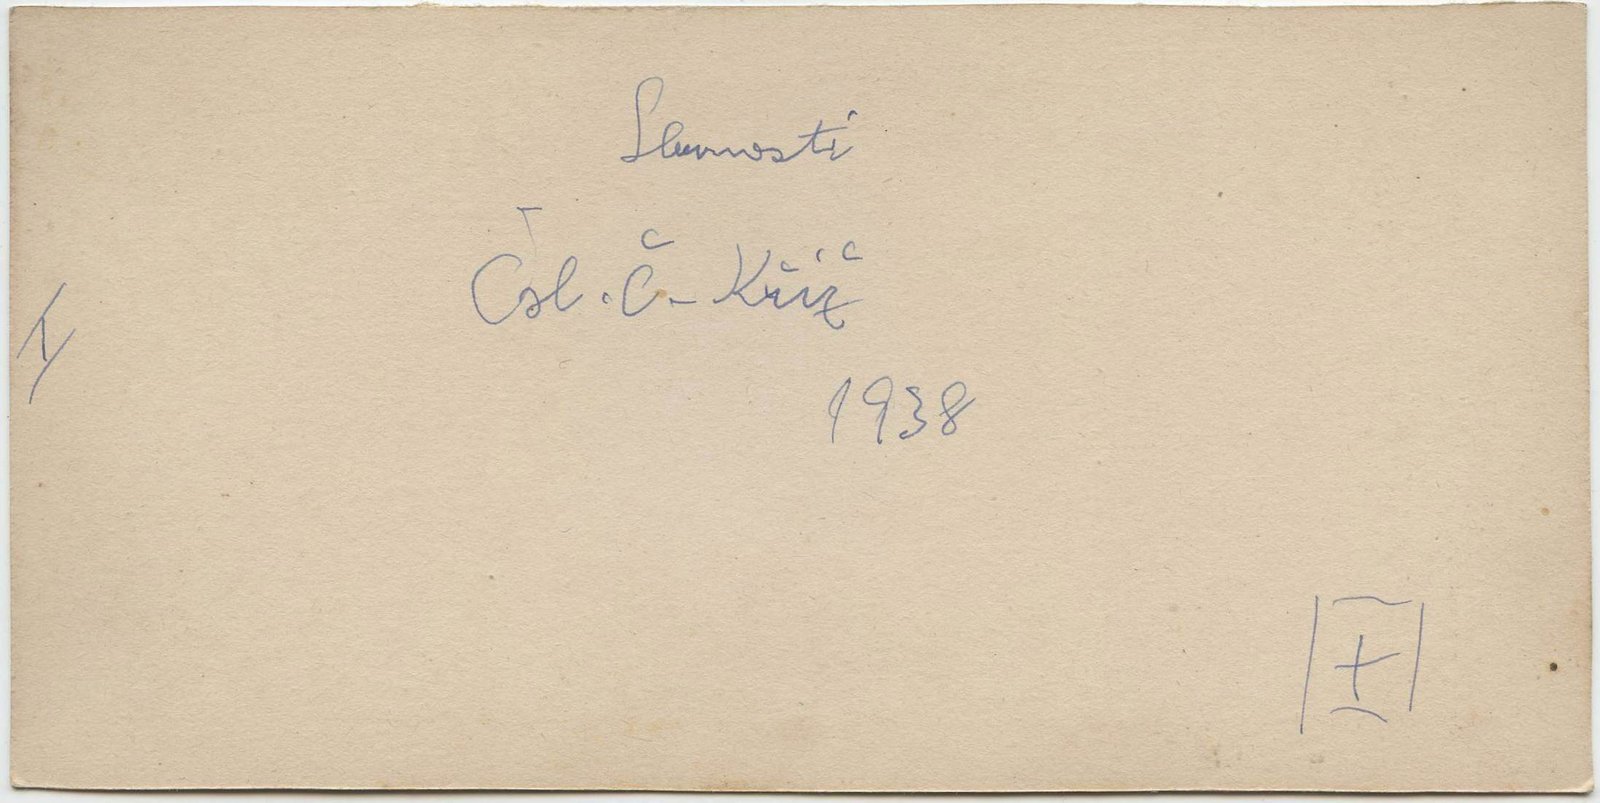 Slavnosti
Čsl. Č. Kříž
1938
1/
+